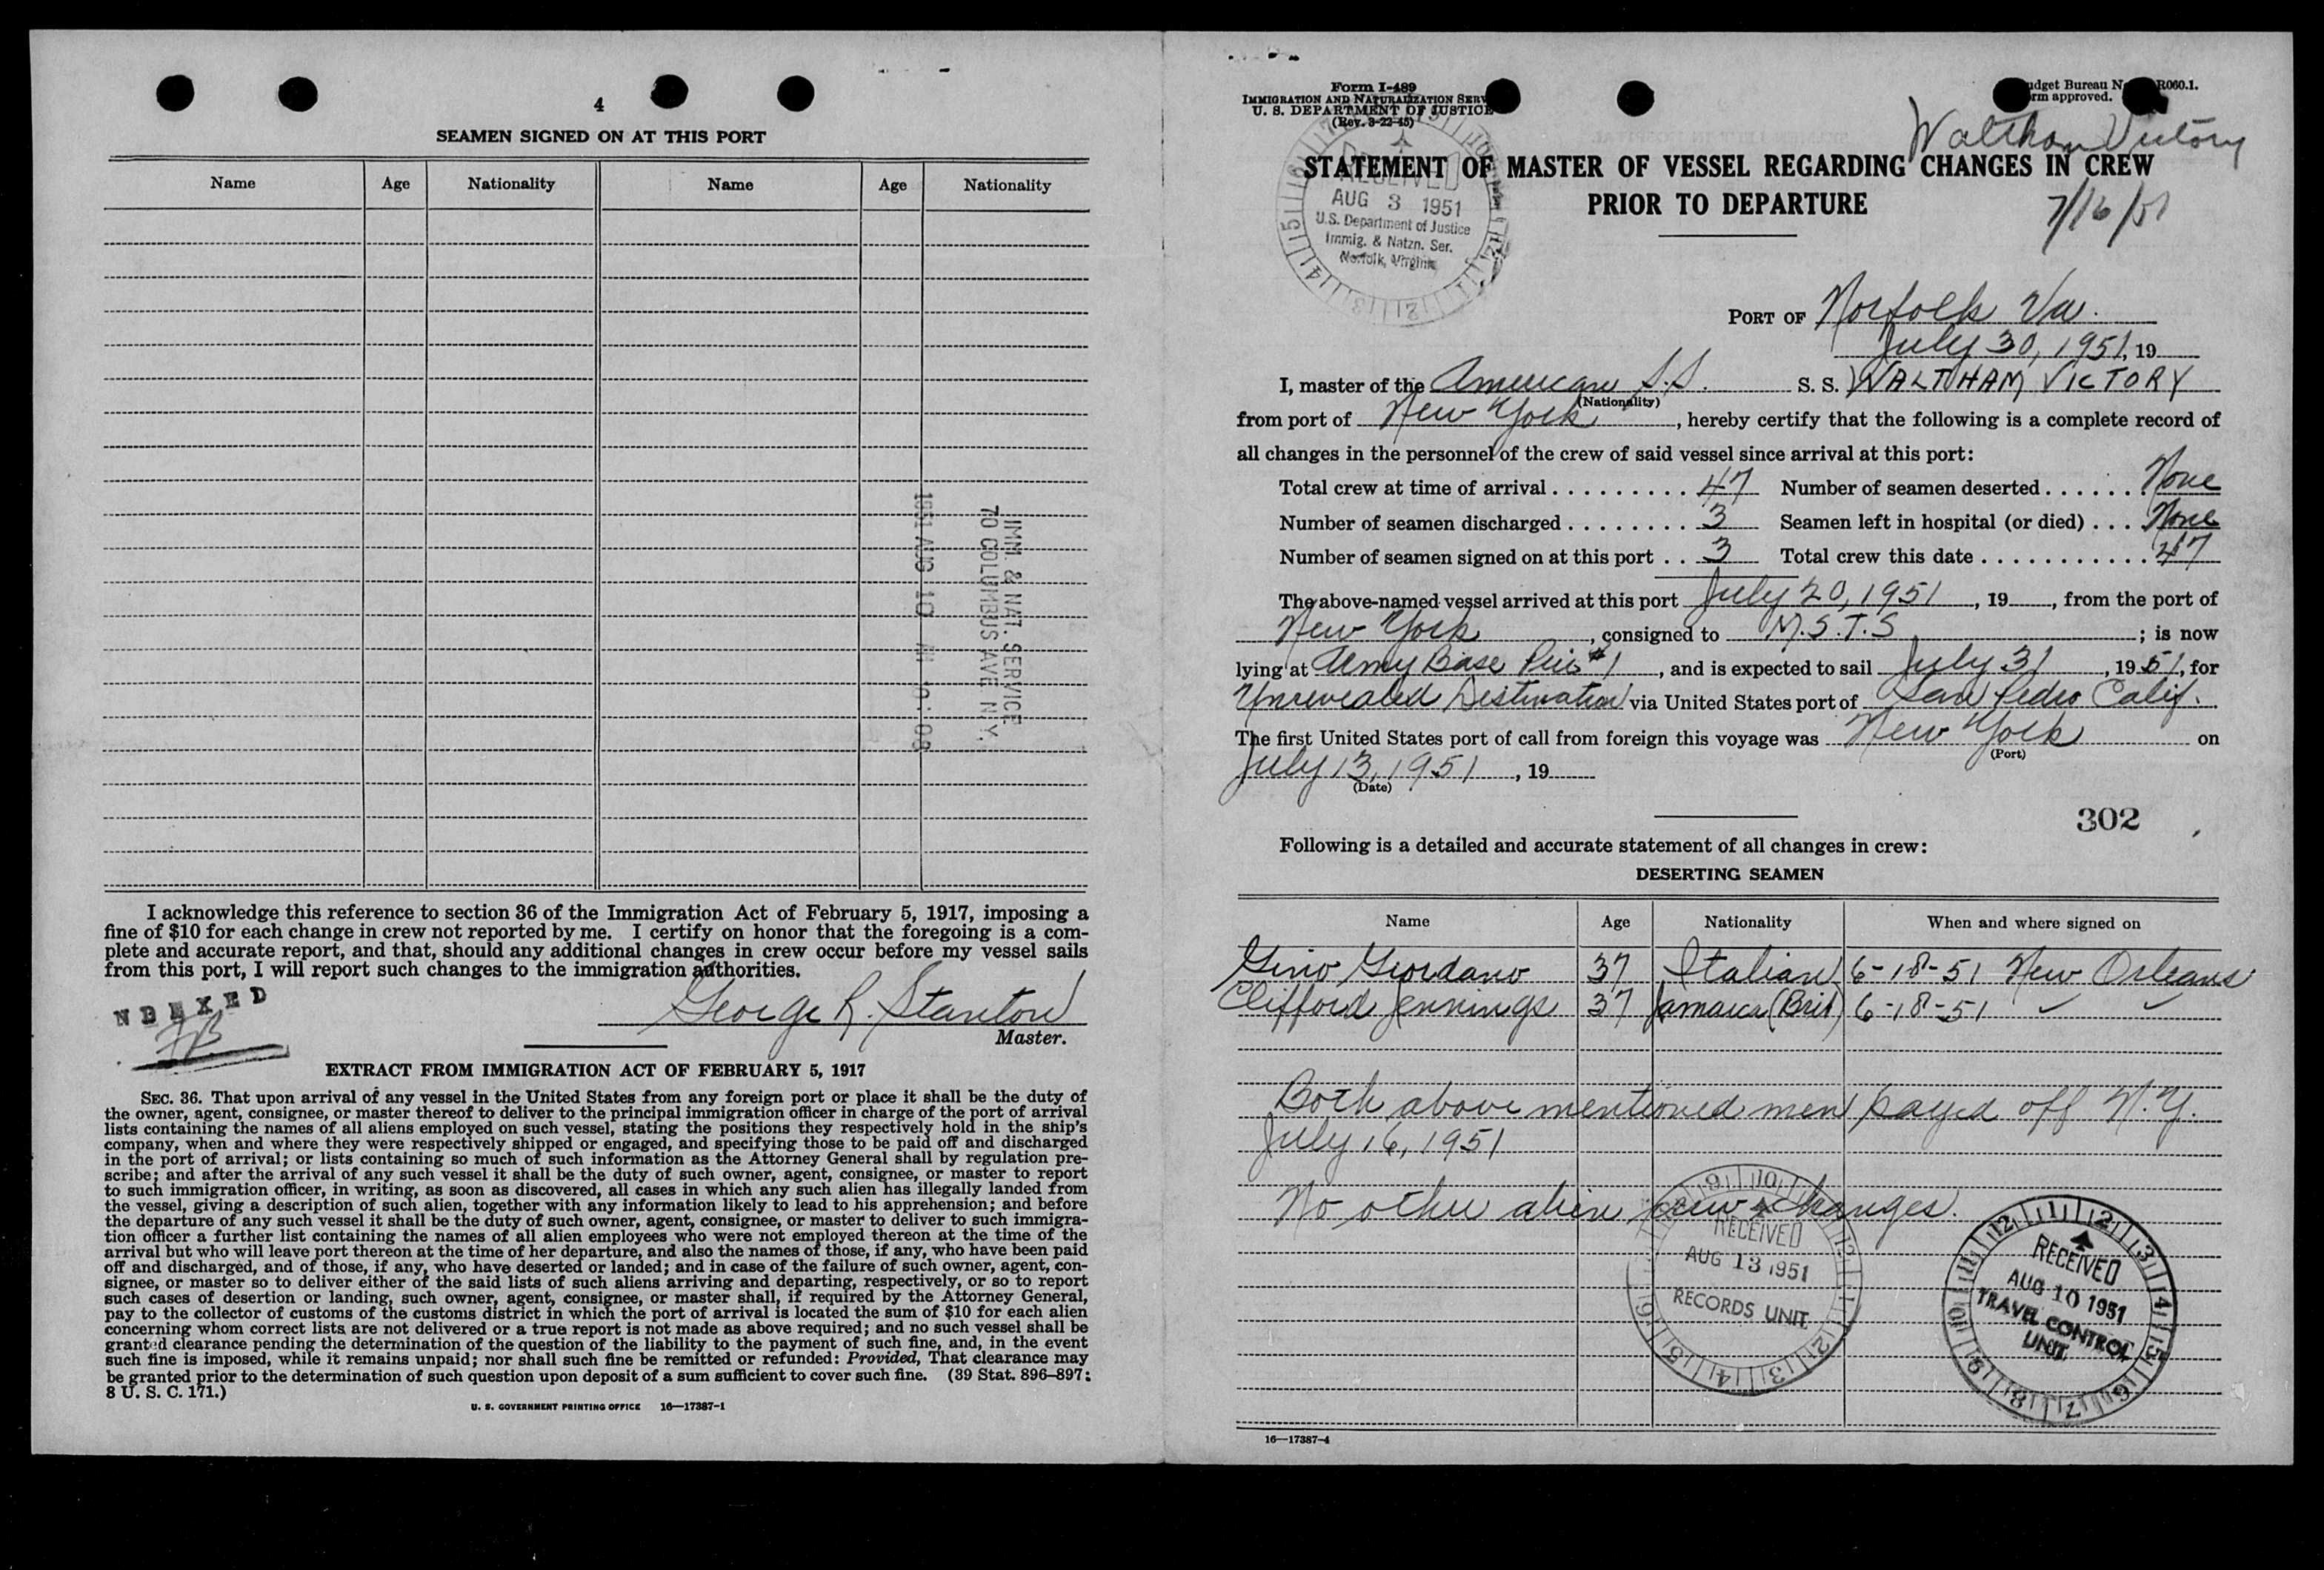 4
SEAMEN SIGNED ON AT THIS PORT
Name Age Nationality Name Age Nationality
IMM. & NAT. SERVICE
70 COLUMBUS AVE N.Y.
1951 AUG 10 AM 9:08
I acknowledge this reference to section 36 of the Immigration Act of February 5, 1917, imposing a
fine of $10 for each change in crew not reported by me. I certify on honor that the foregoing is a com-
plete and accurate report, and that, should any additional changes in crew occur before my vessel sails
from this port, I will report such changes to the immigration authorities.
NDEXED
George R. Stanton
Master.
EXTRACT FROM IMMIGRATION ACT OF FEBRUARY 5, 1917
SEC. 36. That upon arrival of any vessel in the United States from any foreign port or place it shall be the duty of
the owner, agent, consignee, or master thereof to deliver to the principal immigration officer in charge of the port of arrival
lists containing the names of all aliens employed on such vessel, stating the positions they respectively hold in the ship's
company, when and where they were respectively shipped or engaged, and specifying those to be paid off and discharged
in the port of arrival; or lists containing so much of such information as the Attorney General shall by regulation pre-
scribe; and after the arrival of any such vessel it shall be the duty of such owner, agent, consignee, or master to report
to such immigration officer, in writing, as soon as discovered, all cases in which any such alien has illegally landed from
the vessel, giving a description of such alien, together with any information likely to lead to his apprehension; and before
the departure of any such vessel it shall be the duty of such owner, agent, consignee, or master to deliver to such immigra-
tion officer a further list containing the names of all alien employees who were not employed thereon at the time of the
arrival but who will leave port thereon at the time of her departure, and also the names of those, if any, who have been paid
off and discharged, and of those, if any, who have deserted or landed; and in case of the failure of such owner, agent, con-
signee, or master so to deliver either of the said lists of such aliens arriving and departing, respectively, or so to report
such cases of desertion or landing, such owner, agent, consignee, or master shall, if required by the Attorney General,
pay to the collector of customs of the customs district in which the port of arrival is located the sum of $10 for each alien
concerning whom correct lists are not delivered or a true report is not made as above required; and no such vessel shall be
granted clearance pending the determination of the question of the liability to the payment of such fine, and, in the event
such fine is imposed, while it remains unpaid; nor shall such fine be remitted or refunded: Provided, That clearance may
be granted prior to the determination of such question upon deposit of a sum sufficient to cover such fine. (39 Stat. 896-897:
8 U. S. C. 171.)
U. S. GOVERNMENT PRINTING OFFICE 16—17387-1
Form I-489
IMMIGRATION AND NATURALIZATION SERV
U. S. DEPARTMENT OF JUSTICE
(Rev. 3-22-45)
udget Bureau N R060.1.
rm approved.
Waltham Victory
STATEMENT OF MASTER OF VESSEL REGARDING CHANGES IN CREW
PRIOR TO DEPARTURE
7/16/51
RECEIVED
AUG 3 1951
U.S. Department of Justice
Immig. & Natzn. Ser.
Norfolk, Virginia
PORT OF Norfolk Va.
July 30, 1951, 19
I, master of the American S.S. S. S. WALTHAM VICTORY
(Nationality)
from port of New York, hereby certify that the following is a complete record of
all changes in the personnel of the crew of said vessel since arrival at this port:
Total crew at time of arrival . . . . . . . . . 47 Number of seamen deserted . . . . . . None
Number of seamen discharged . . . . . . . . 3 Seamen left in hospital (or died) . . . None
Number of seamen signed on at this port . . 3 Total crew this date . . . . . . . . . . . 47
The above-named vessel arrived at this port July 20, 1951, 19, from the port of
New York, consigned to M.S.T.S; is now
lying at Army Base Pier #1, and is expected to sail July 31, 1951, for
Unrevealed Destination via United States port of San Pedro Calif.
The first United States port of call from foreign this voyage was New York on
(Port)
July 13, 1951, 19
(Date)
302
Following is a detailed and accurate statement of all changes in crew:
DESERTING SEAMEN
Name Age Nationality When and where signed on
Gino Giordano 37 Italian 6-18-51 New Orleans
Clifford Jennings 37 Jamaica (Brit) 6-18-51 ✓ ✓
Both above mentioned men payed off N.Y.
July 16, 1951
No other alien crew changes.
RECEIVED
AUG 13 1951
RECORDS UNIT
RECEIVED
AUG 10 1951
TRAVEL CONTROL
UNIT
16—17387-4